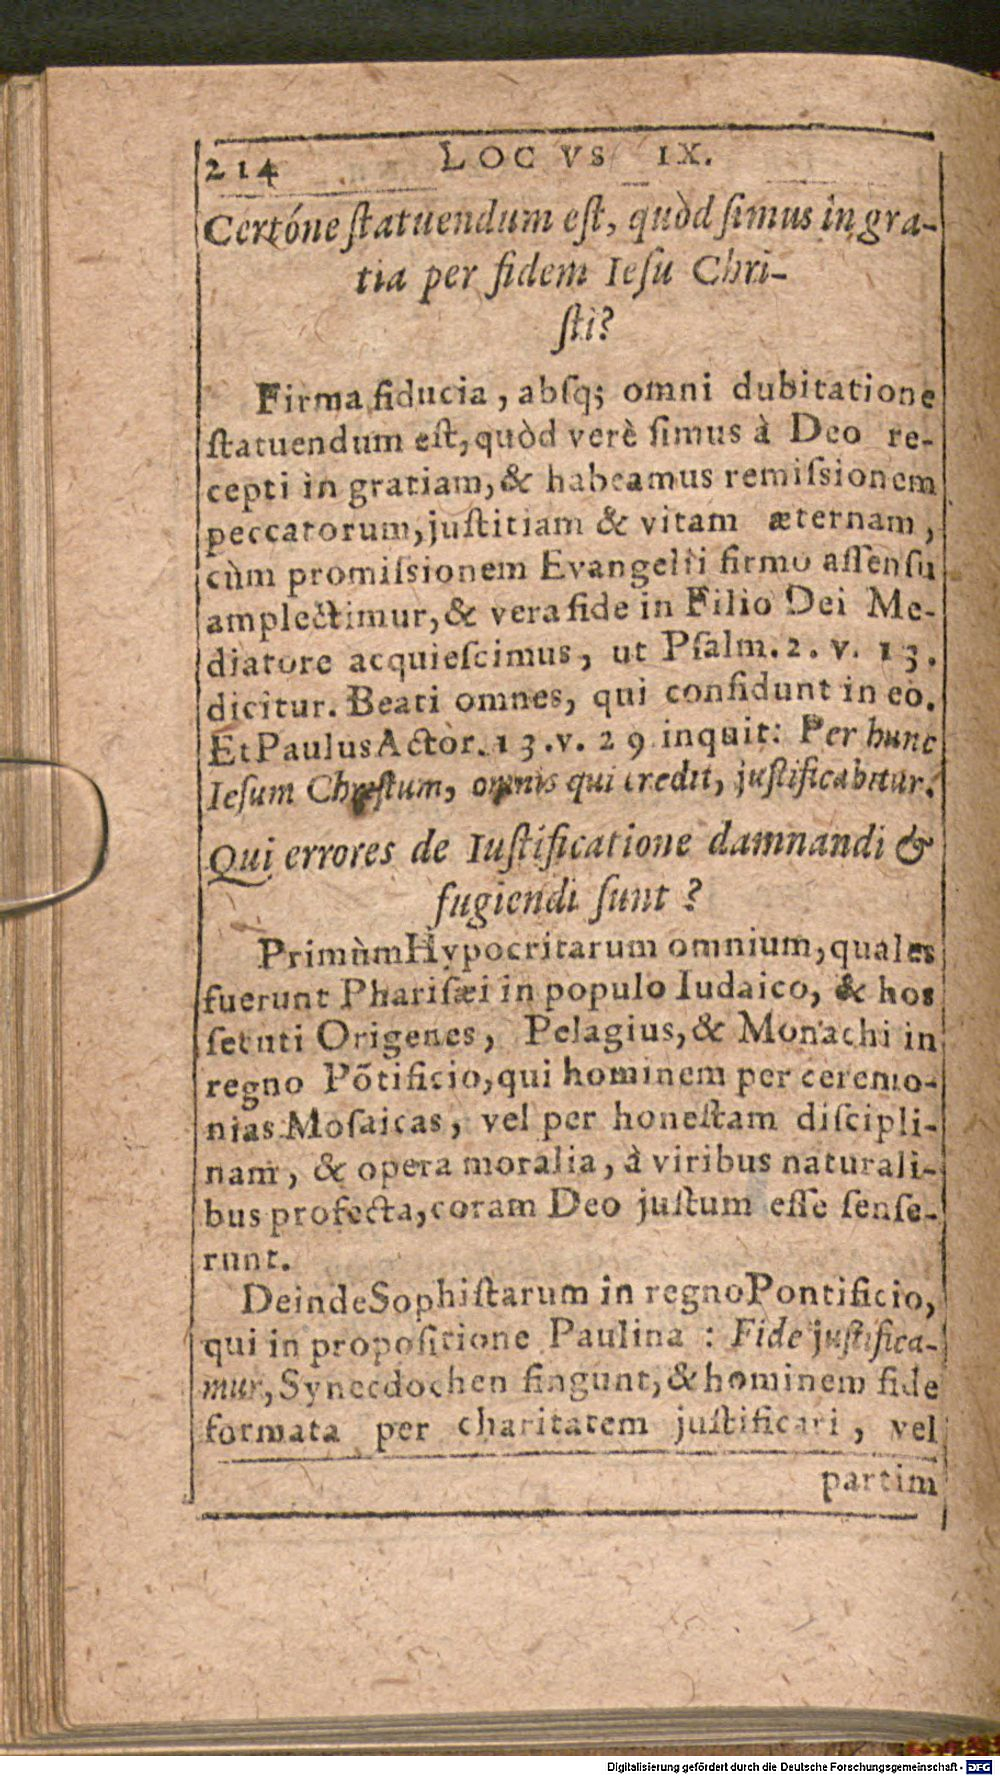 214 LOCVS IX.
Certóne ſtatuendum eſt, quòd ſimus in gra-
tia per fidem Ieſu Chri-
ſti?
Firma fiducia, abſq; omni dubitatione
ſtatuendum eſt, quòd verè ſimus à Deo re-
cepti in gratiam, & habeamus remiſsionem
peccatorum, juſtitiam & vitam æternam,
cùm promiſsionem Evangelii firmo aſſenſu
amplectimur, & vera fide in Filio Dei Me-
diatore acquieſcimus, ut Pſalm. 2. v. 13.
dicitur. Beati omnes, qui confidunt in eo.
Et Paulus Actor. 13. v. 29 inquit: Per hunc
Ieſum Chriſtum, omnis qui credit, juſtificabitur.
Qui errores de Iuſtificatione damnandi &
fugiendi ſunt?
Primùm Hypocritarum omnium, quales
fuerunt Phariſæi in populo Iudaico, & hos
ſecuti Origenes, Pelagius, & Monachi in
regno Põtificio, qui hominem per ceremo-
nias Moſaicas, vel per honeſtam diſcipli-
nam, & opera moralia, à viribus naturali-
bus profecta, coram Deo juſtum eſſe ſenſe-
runt.
Deinde Sophiſtarum in regno Pontificio,
qui in propoſitione Paulina: Fide juſtifica-
mur, Synecdochen fingunt, & hominem fide
formata per charitatem juſtificari, vel
partim
Digitalisierung gefördert durch die Deutsche Forschungsgemeinschaft - DFG